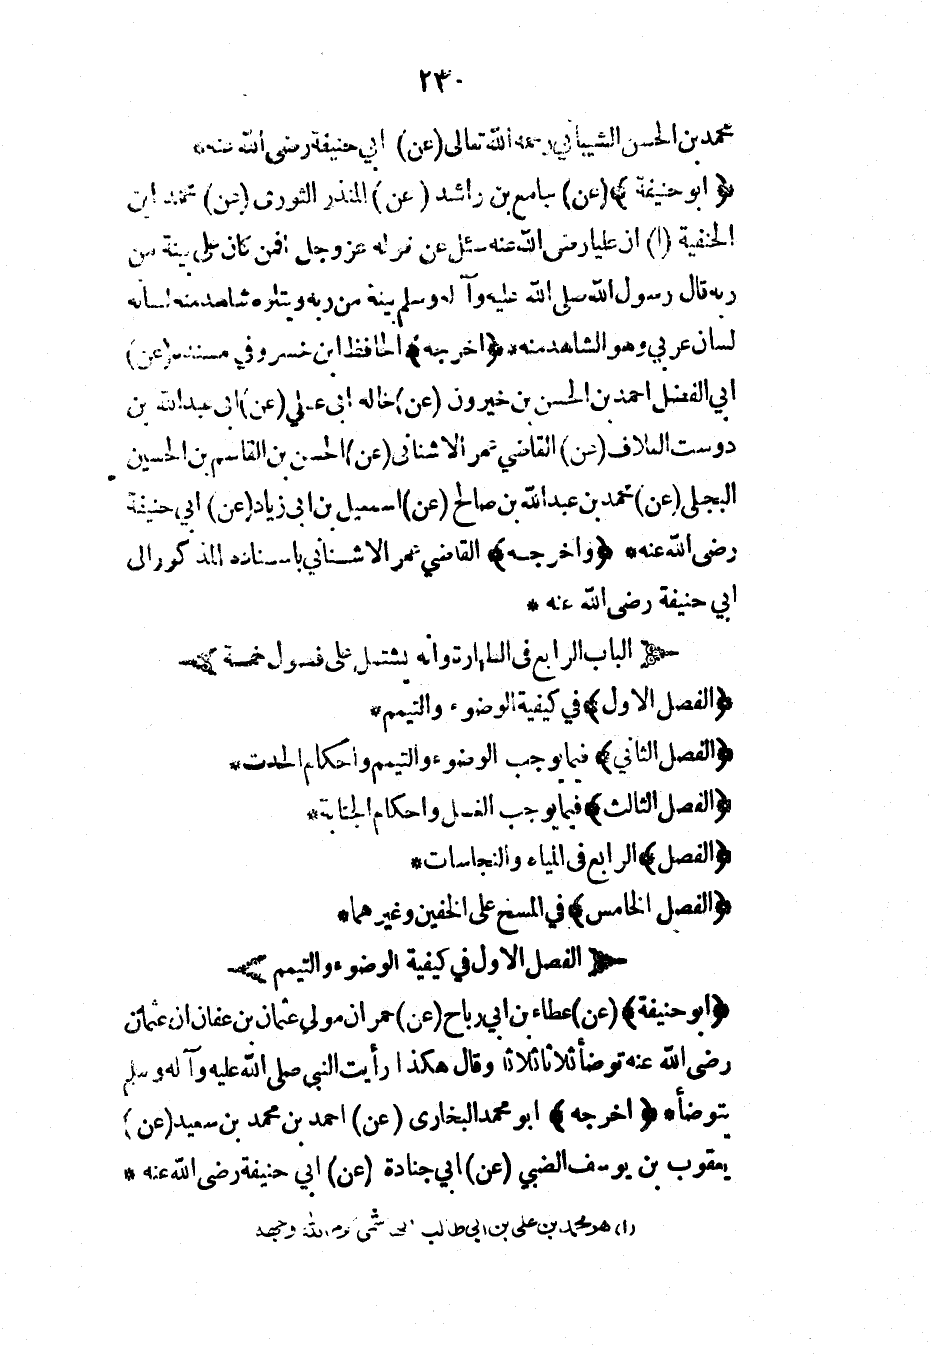 ٢٣٠
محمد بن الحسن الشيباني رحمه الله تعالى (عن) ابي حنيفة رضى الله عنه*
﴿ ابو حنيفة ﴾ (عن) جامع بن راشد (عن) المنذر الثورى (عن) محمد ابن
الحنفية (١) ان عليا رضى الله عنه سئل عن قوله عز وجل افمن كان على بينة من
ربه قال رسول الله صلى الله عليه وآله وسلم بينة من ربه ويتلوه شاهد منه لسانه
لسان عربي وهو الشاهد منه* ﴿اخرجه﴾ الحافظ ابن خسرو في مسنده (عن)
ابي الفضل احمد بن الحسن بن خيرون (عن) خاله ابى علي (عن) ابى عبدالله بن
دوست العلاف (عن) القاضي عمر الاشنانى (عن) الحسن بن القاسم بن الحسين
البجلى (عن) محمد بن عبدالله بن صالح (عن) اسمعيل بن ابى زياد (عن) ابي حنيفة
رضى الله عنه * ﴿واخرجه﴾ القاضي عمر الاشناني باسناده المذكور الى
ابي حنيفة رضى الله عنه *
الباب الرابع فى الطهارة وانه يشتمل على فصول خمسة
﴿الفصل الاول﴾ في كيفية الوضوء والتيمم*
﴿الفصل الثاني﴾ فيما يوجب الوضوء والتيمم واحكام الحدث*
﴿الفصل الثالث﴾ فيما يوجب الغسل واحكام الجنابة*
﴿الفصل﴾ الرابع فى المياه والنجاسات*
﴿الفصل الخامس﴾ في المسح على الخفين وغيرهما*
الفصل الاول في كيفية الوضوء والتيمم
﴿ابو حنيفة﴾ (عن) عطاء بن ابي رباح (عن) حمران مولى عثمان بن عفان ان عثمان
رضى الله عنه توضأ ثلاثا ثلاثا وقال هكذا رأيت النبي صلى الله عليه وآله وسلم
يتوضأ* ﴿ اخرجه ﴾ ابو محمد البخارى (عن) احمد بن محمد بن سعيد (عن)
يعقوب بن يوسف الضبي (عن) ابي جنادة (عن) ابي حنيفة رضى الله عنه *
(١) هو محمد بن على بن ابي طالب الهاشمى كرم الله وجهه